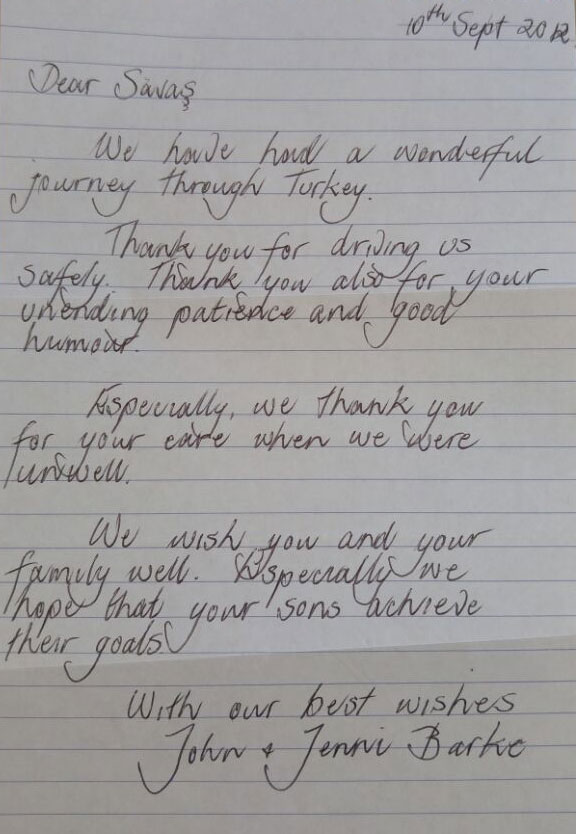 10th Sept 2012
Dear Savaş
We have had a wonderful
journey through Turkey.
Thank you for driving us
safely. Thank you also for your
unending patience and good
humour.
Especially, we thank you
for your care when we were
unwell.
We wish you and your
family well. Especially we
hope that your sons achieve
their goals
With our best wishes
John & Jenni Barke